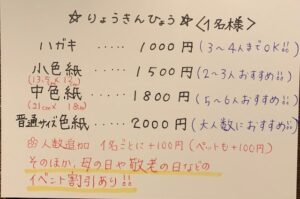 ☆りょうきんひょう☆〈1名様〉
ハガキ ‥‥‥ 1000円 (3〜4人までOK!!)
小色紙 ‥‥‥ 1500円 (2〜3人おすすめ!!)
(13.5㎝×12㎝)
中色紙 ‥‥‥ 1800円 (5〜6人おすすめ!!)
(21㎝×18㎝)
普通サイズ色紙 ‥‥‥ 2000円 (大人数におすすめ!!)
人数追加 1名ごとに+100円 (ペットも+100円)
そのほか、母の日や敬老の日などの
イベント割引あり!!